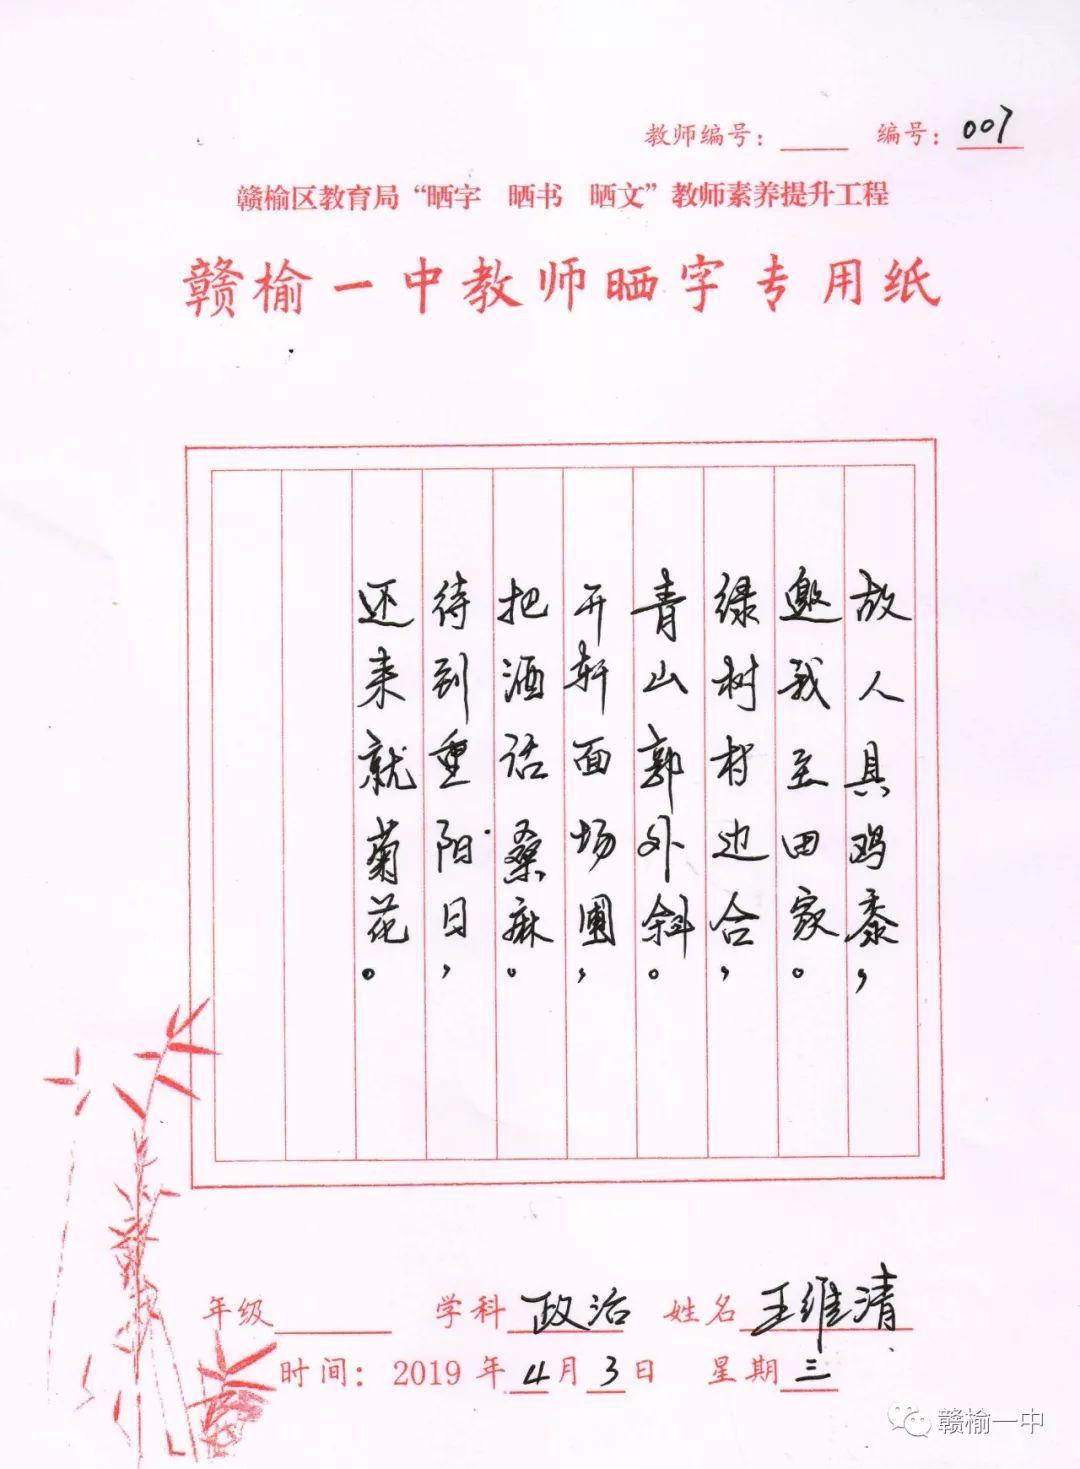 教师编号： 编号：007
赣榆区教育局“晒字 晒书 晒文”教师素养提升工程
赣榆一中教师晒字专用纸
故人具鸡黍，
邀我至田家。
绿树村边合，
青山郭外斜。
开轩面场圃，
把酒话桑麻。
待到重阳日，
还来就菊花。
年级 学科 政治 姓名 王维清
时间：2019年4月3日 星期三
赣榆一中